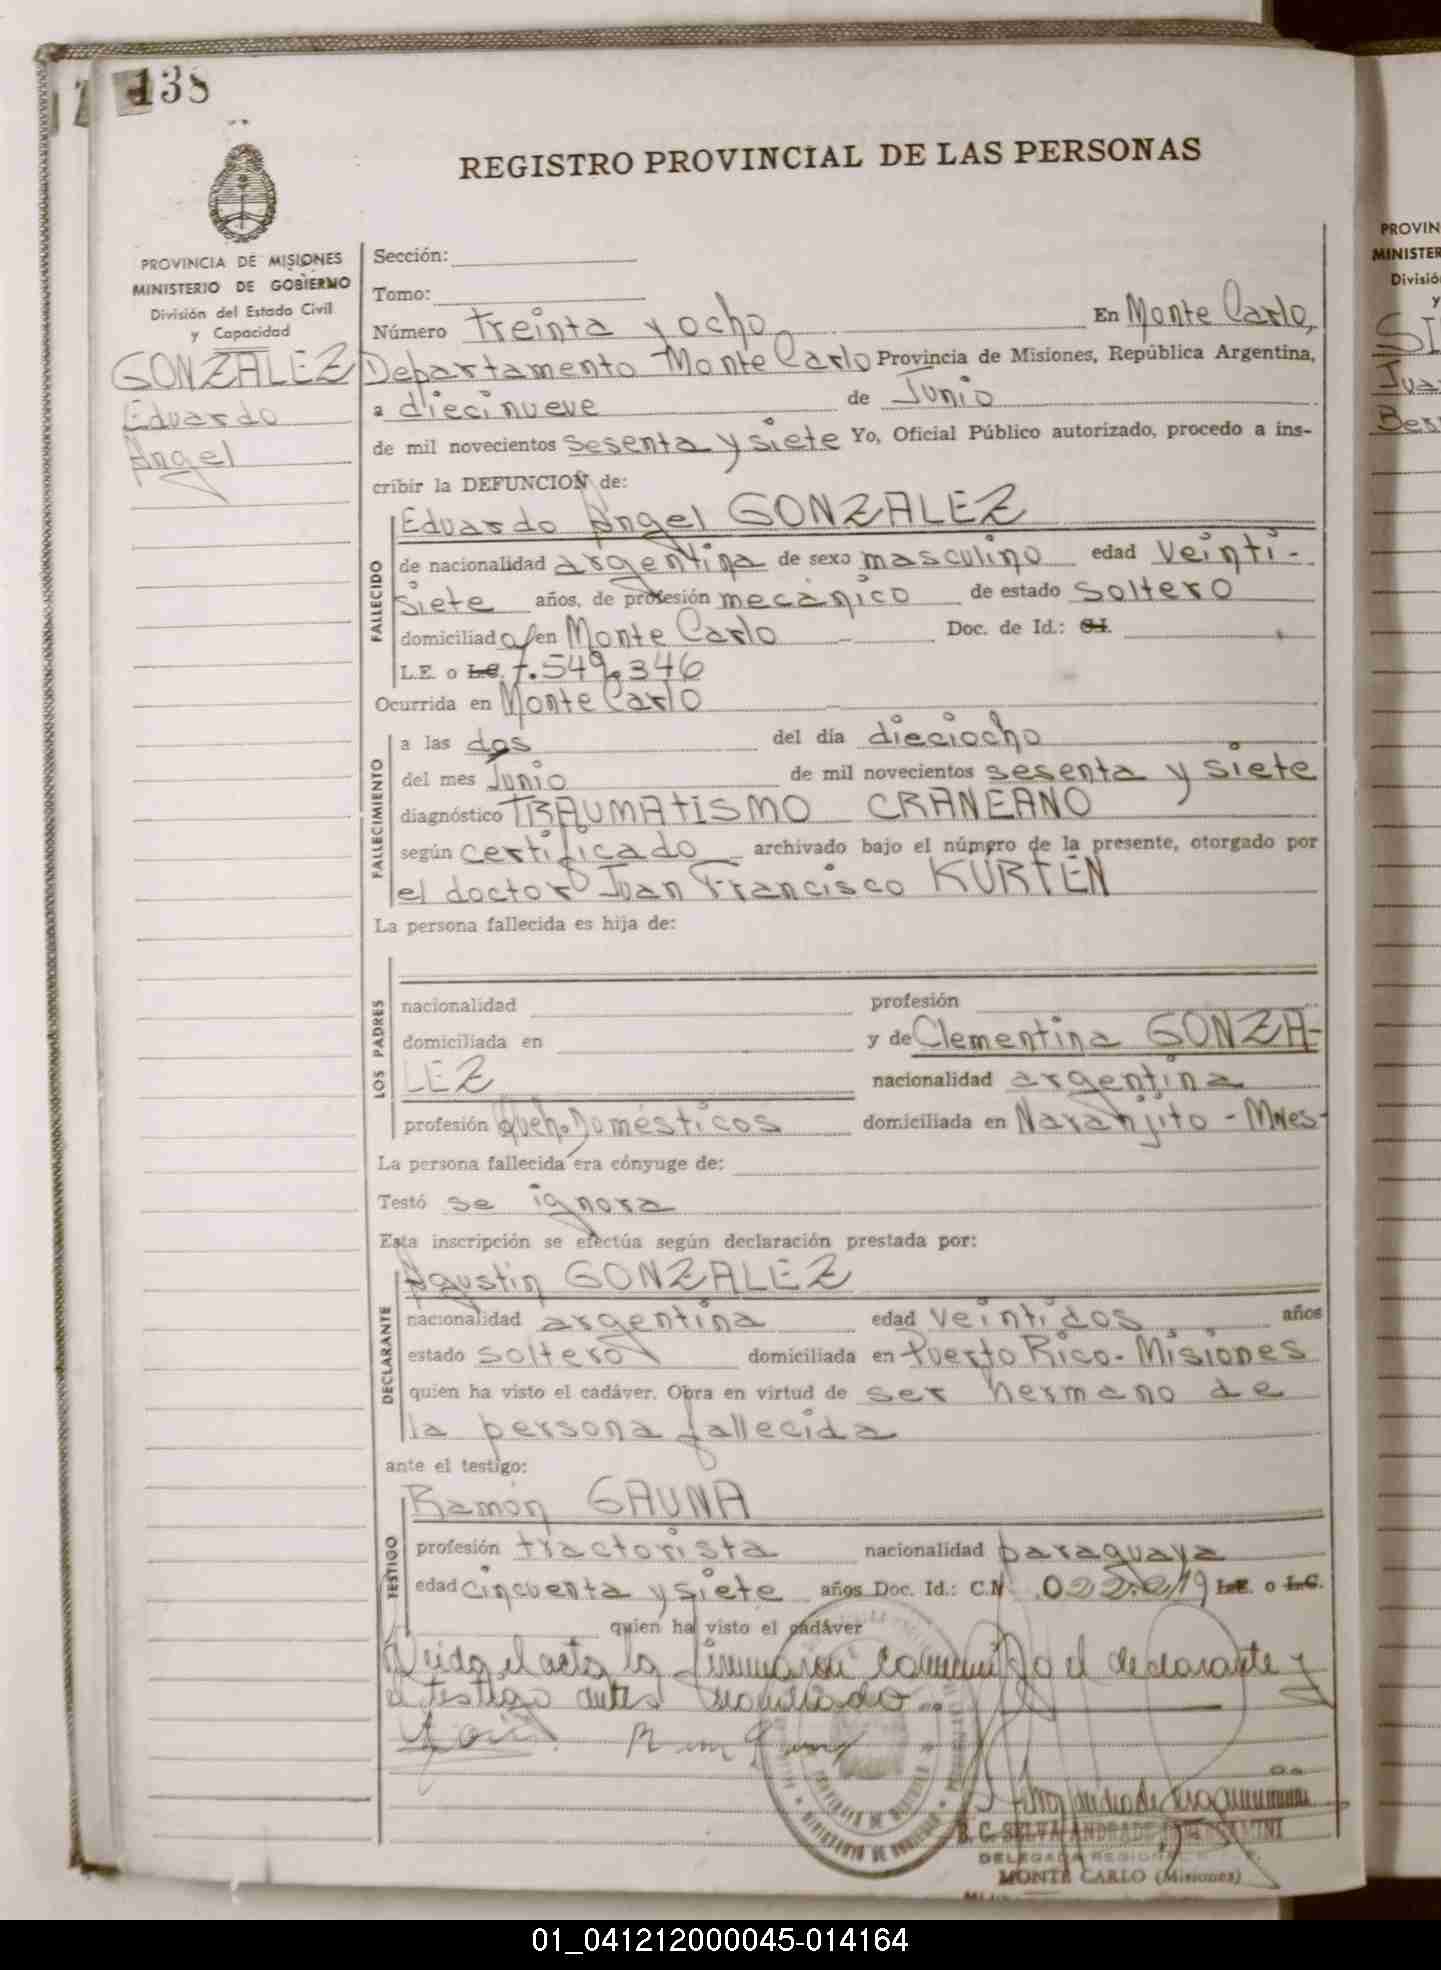 138
REGISTRO PROVINCIAL DE LAS PERSONAS
PROVINCIA DE MISIONES
MINISTERIO DE GOBIERNO
División del Estado Civil
y Capacidad
GONZALEZ
Eduardo
Angel
Sección:
Tomo:
Número treinta y ocho En Monte Carlo,
Departamento Monte Carlo Provincia de Misiones, República Argentina,
a diecinueve de Junio
de mil novecientos sesenta y siete Yo, Oficial Público autorizado, procedo a ins-
cribir la DEFUNCION de:
FALLECIDO
Eduardo Angel GONZALEZ
de nacionalidad argentina de sexo masculino edad veinti-
siete años, de profesión mecánico de estado soltero
domiciliado en Monte Carlo Doc. de Id.: C.I.
L.E. o L.C. 7.549.346
Ocurrida en Monte Carlo
FALLECIMIENTO
a las dos del día dieciocho
del mes Junio de mil novecientos sesenta y siete
diagnóstico TRAUMATISMO CRANEANO
según certificado archivado bajo el número de la presente, otorgado por
el doctor Juan Francisco KURTEN
La persona fallecida es hija de:
LOS PADRES
nacionalidad profesión
domiciliada en y de Clementina GONZA-
LEZ nacionalidad argentina
profesión Queh. Domésticos domiciliada en Naranjito - Mnes-
La persona fallecida era cónyuge de:
Testó se ignora
Esta inscripción se efectúa según declaración prestada por:
DECLARANTE
Agustin GONZALEZ
nacionalidad argentina edad veintidos años
estado soltero domiciliada en Puerto Rico - Misiones
quien ha visto el cadáver. Obra en virtud de ser hermano de
la persona fallecida
ante el testigo:
TESTIGO
Ramón GAUNA
profesión tractorista nacionalidad paraguaya
edad cincuenta y siete años Doc. Id.: C.N. L.E. o L.C.
quien ha visto el cadáver
Leida el acta la firmaron conmigo el declarante y
el testigo antes nombrado.
B. C. SELVA ANDRADE
DELEGADA REGIONAL
MONTE CARLO (Misiones)
PROVIN
MINISTER
Divisió
y
SI
Jua
Ber
01_041212000045-014164